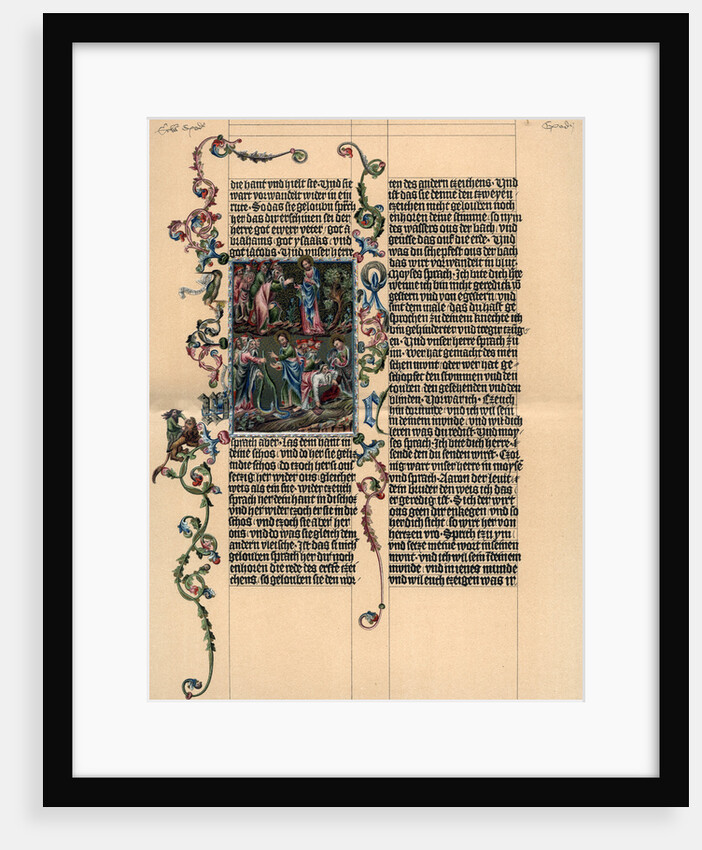 die hant vnd hielt sie · Vnd sie
wart vorwandelt wider in ein
rute · So das sie gelouben sprach
her das dir erschinen sei der
herre got ewerr veter · got a
brahams · got ysaaks · vnd
got iacobs · Vnd vnser herre
sprach aber · Las dein hant in
deine schos · vnd do her sie geliz
in die schos · do tzoch her si ous
setzig her wider ous · gleicher
weis als ein sne · wider tzeuch
sprach her dein hant in di schoz
vnd her wider tzoch er sie in die
schos · vnd tzoch sie aber her
ous · vnd do was sie gleich dem
andern vleische · Ist das si nicht
gelouben sprach her dir noch
enhoren die rede des ersten tzei
chens · so gelouben sie den wor
ten des andern tzeichens · Vnd
ist das sie denne den tzweyen
tzeichen nicht gelouben noch
enhoren deine stimme · so nym
des wassers ous der bach · vnd
geusse das ouf die erde · Vnd
was du schepfest ous der bach
das wirt vorwandelt in blut ·
Moyses sprach · Ich bite dich hre
wenne ich bin nicht geredick io
gestern vnd von egestern · vnd
sint dem male · das du hast ge
sprochen zu deinem knechte ich
bin gehinderter vnd treger tzug
en · Vnd vnser herre sprach zu
im · Wer hat gemacht des men
schen munt · oder wer hat ge
schopfet den stymmen vnd den
touben · den gesehenden vnd den
blinden · Vorwar ich · Tzeuch
hin dorumbe · vnd ich wil sein
in deinem munde · vnd wil dich
leren was du redist · Vnd moy
ses sprach · Ich bite dich herre ·
sende den du senden wirst · Tzor
nig wart vnser herre in moyse
vnd sprach · Aaron der leuite ·
dein bruder den weis ich das
er geredig ist · Sich der wirt
ous geen dir enkegen · vnd so
her dich sicht · so wirt her von
hertzen vro · Sprich tzu ym
vnd setze meine wort in seinen
munt · vnd ich wil sein in deinem
munde · vnd in ienes munde
vnd wil euch tzeigen was ir